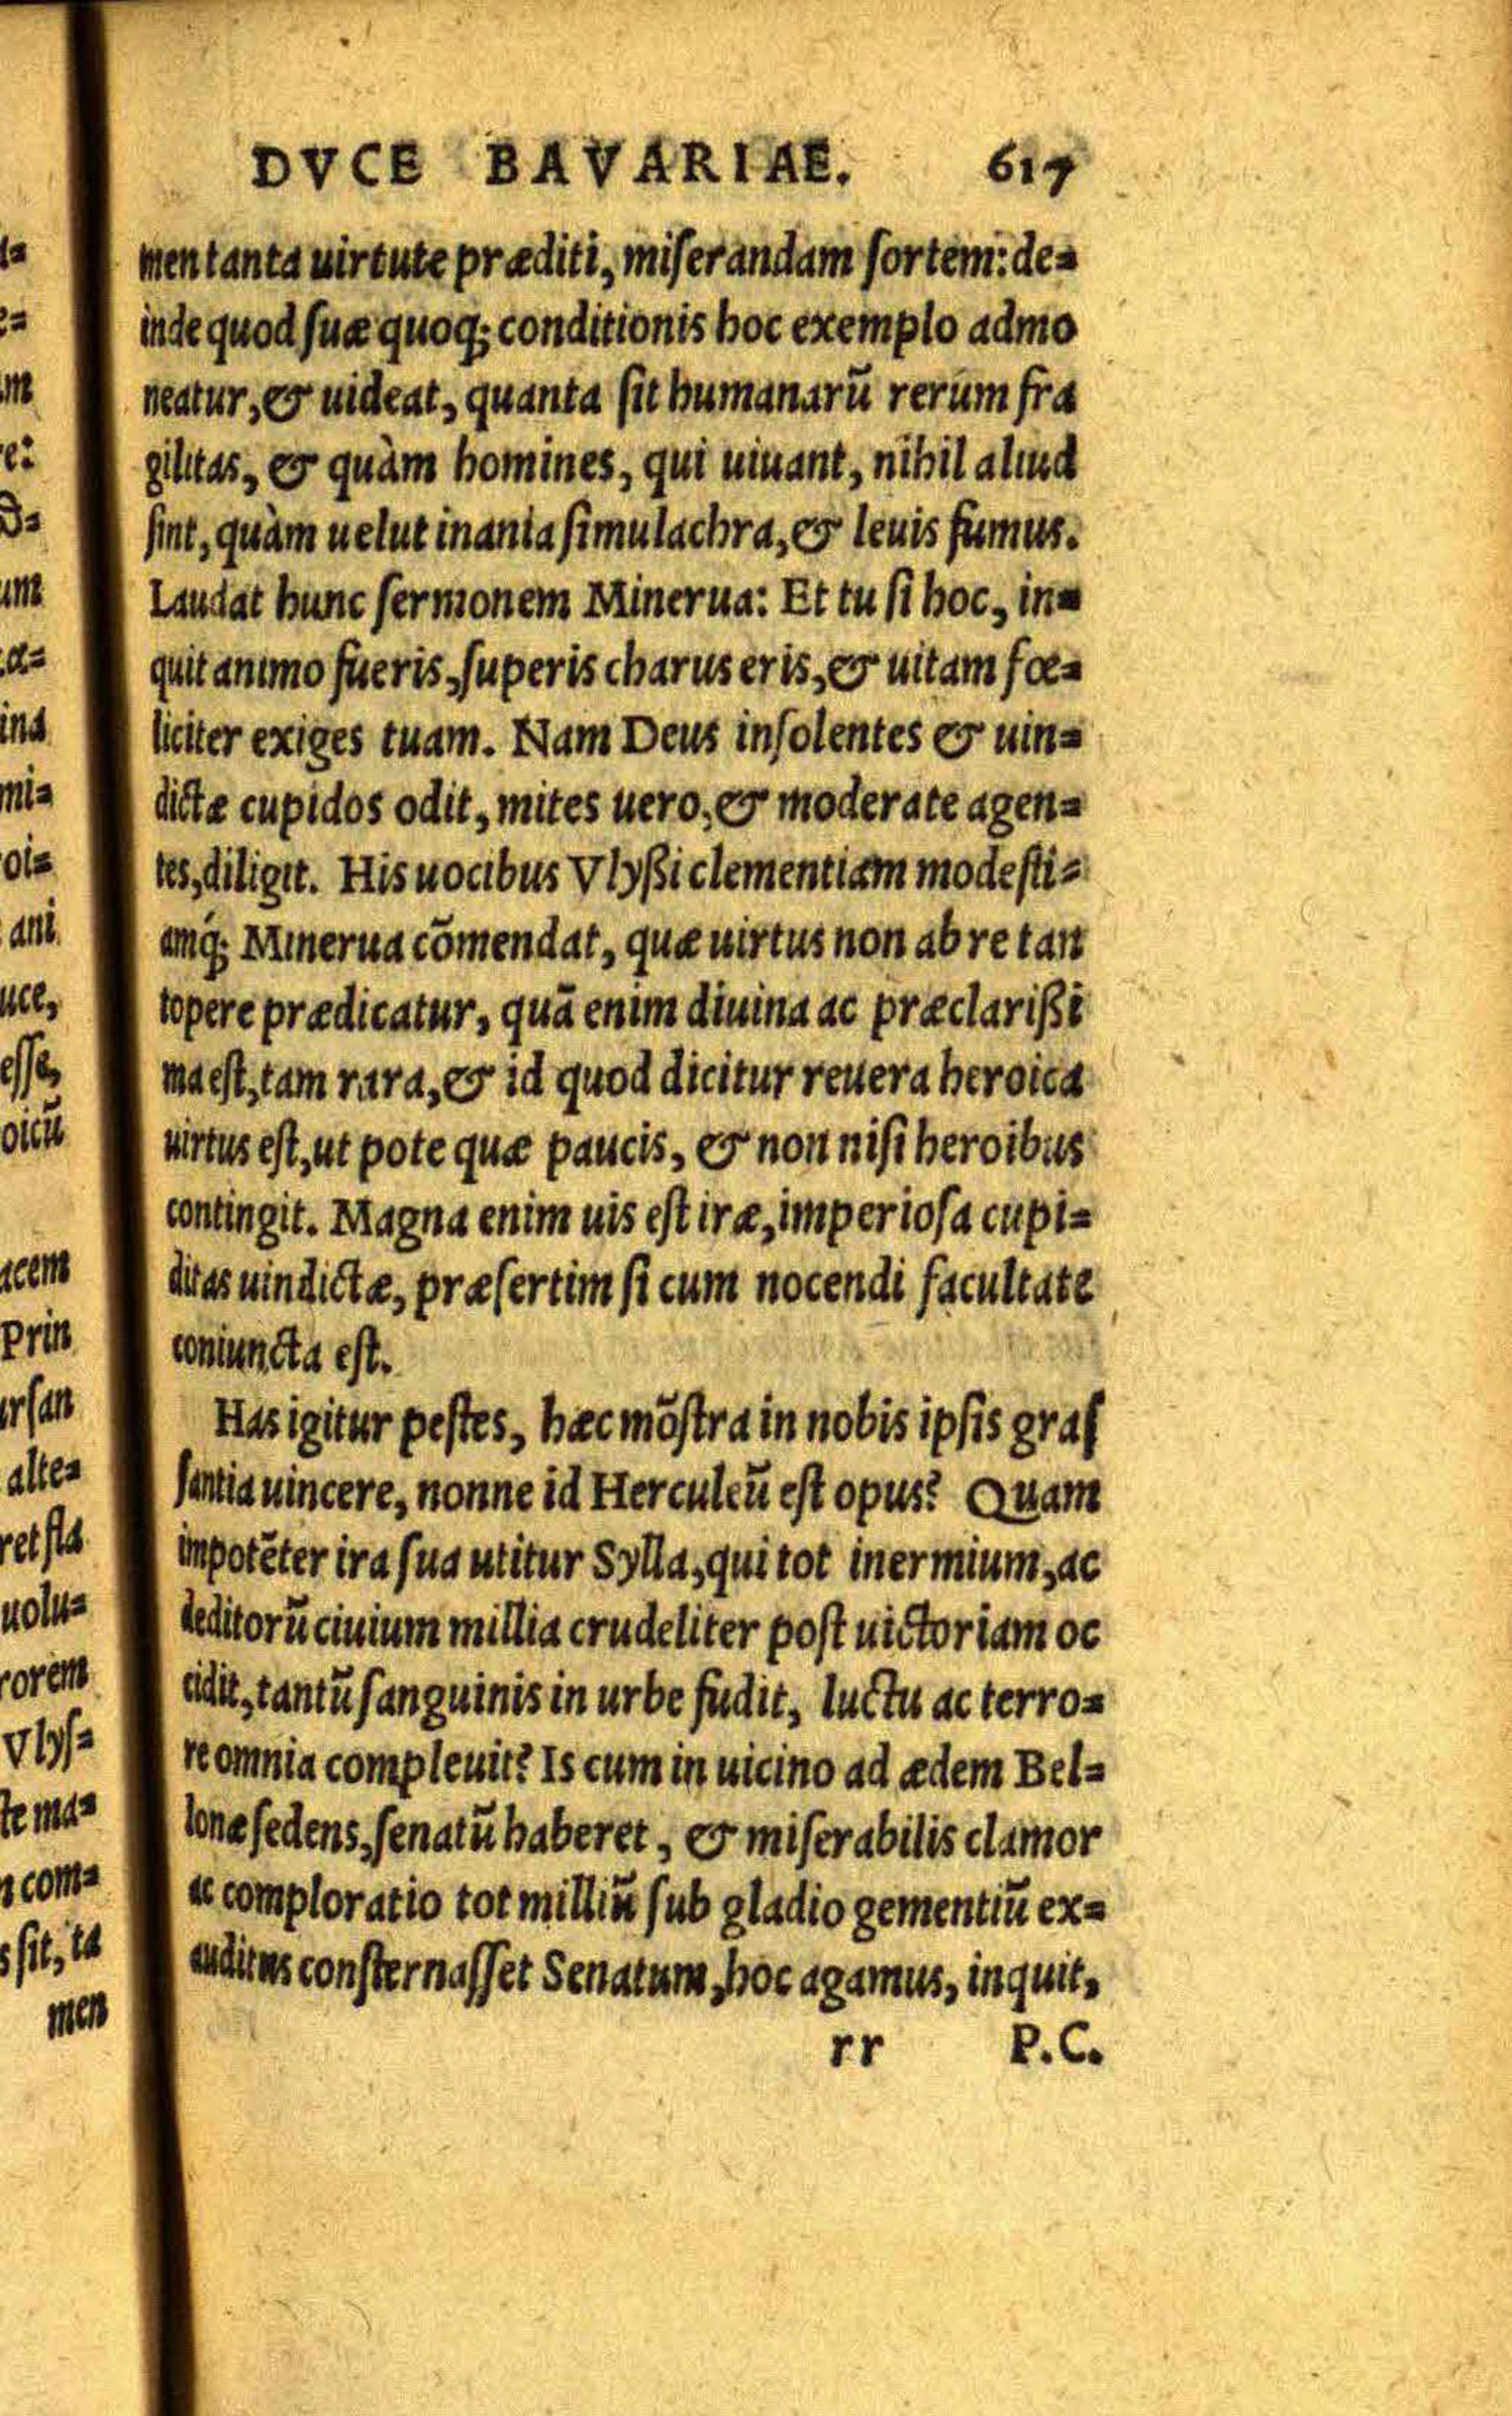 DVCE BAVARIAE. 617
men tanta uirtute præditi, miſerandam ſortem: de=
inde quod ſuæ quoq; conditionis hoc exemplo admo
neatur, & uideat, quanta ſit humanarū rerum fra
gilitas, & quàm homines, qui uiuant, nihil aliud
ſint, quàm uelut inania ſimulachra, & leuis fumus.
Laudat hunc ſermonem Minerua: Et tu ſi hoc, in=
quit animo fueris, ſuperis charus eris, & uitam fœ=
liciter exiges tuam. Nam Deus inſolentes & uin=
dictæ cupidos odit, mites uero, & moderate agen=
tes, diligit. His uocibus Vlyßi clementiam modeſti=
amq́; Minerua cōmendat, quæ uirtus non ab re tan
topere prædicatur, quā enim diuina ac præclarißi
ma eſt, tam rara, & id quod dicitur reuera heroica
uirtus eſt, ut pote quæ paucis, & non niſi heroibus
contingit. Magna enim uis eſt iræ, imperioſa cupi=
ditas uindictæ, præſertim ſi cum nocendi facultate
coniuncta eſt.
Has igitur peſtes, hæc mōſtra in nobis ipſis graſ
ſantia uincere, nonne id Herculeū eſt opus? Quam
impotēter ira ſua utitur Sylla, qui tot inermium, ac
deditorū ciuium millia crudeliter poſt uictoriam oc
cidit, tantū ſanguinis in urbe fudit, luctu ac terro=
re omnia compleuit? Is cum in uicino ad ædem Bel=
lonæ ſedens, ſenatū haberet, & miſerabilis clamor
ac comploratio tot milliū ſub gladio gementiū ex=
auditus conſternaſſet Senatum, hoc agamus, inquit,
rr P.C.